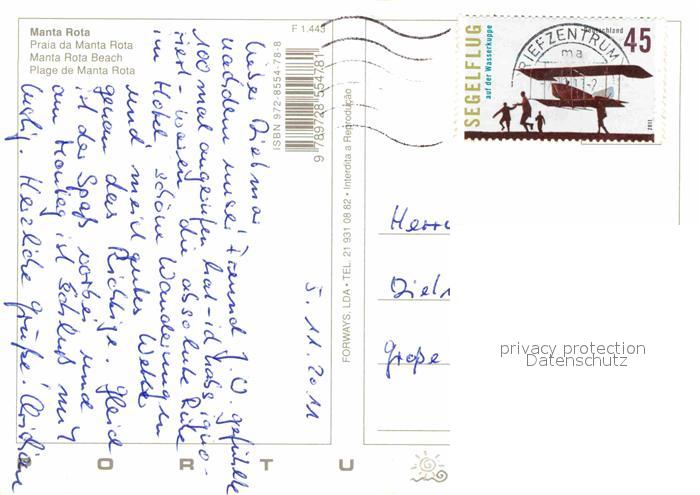 Manta Rota
Praia da Manta Rota
Manta Rota Beach
Plage de Manta Rota
F 1.443
ISBN 972-8554-78-8
9 789728 554781
FORWAYS, LDA • TEL. 21 931 08 82 • Interdita a Reprodução
Lieber Dietmar
nachdem unser Freund J.W. gefühlte
100 mal angerufen hat - ich hab's igno-
riert - waren die absolute Ruhe
im Hotel schöne Wanderungen
und meist gutes Wetter
genau das Richtige. Gleich
ist der Spaß vorbei und
am Montag ist Schluß mit
lustig. Herzliche Grüße
5.11.2011
SEGELFLUG
auf der Wasserkuppe
Deutschland
45
2011
BRIEFZENTRUM
Herrn
Große
privacy protection
Datenschutz
O R T U